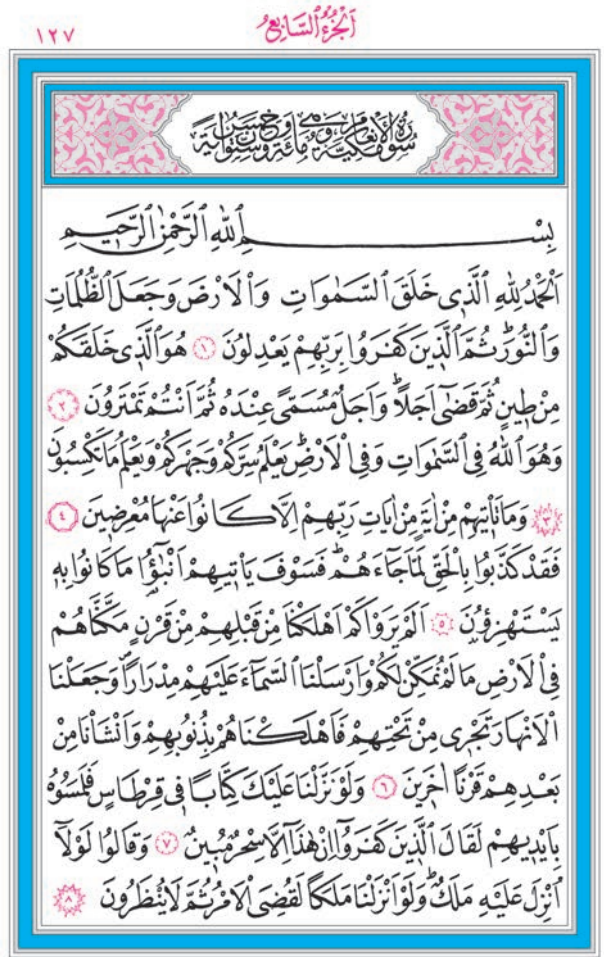 اَلْجُزْءُ السَّابِعُ
١٢٧
سُورَةُ الْاَنْعَامِ مَكِّيَّةٌ وَهِيَ مِائَةٌ وَخَمْسٌ وَسِتُّونَ اٰيَةً
بِسْمِ اللّٰهِ الرَّحْمٰنِ الرَّحِيمِ
اَلْحَمْدُ لِلّٰهِ الَّذِى خَلَقَ السَّمٰوَاتِ وَالْاَرْضَ وَجَعَلَ الظُّلُمَاتِ
وَالنُّورَۜ ثُمَّ الَّذِينَ كَفَرُوا بِرَبِّهِمْ يَعْدِلُونَ ﴿١﴾ هُوَ الَّذِى خَلَقَكُمْ
مِنْ طِينٍ ثُمَّ قَضٰٓى اَجَلاًۜ وَاَجَلٌ مُسَمًّى عِنْدَهُ ثُمَّ اَنْتُمْ تَمْتَرُونَ ﴿٢﴾
وَهُوَ اللّٰهُ فِى السَّمٰوَاتِ وَفِى الْاَرْضِۜ يَعْلَمُ سِرَّكُمْ وَجَهْرَكُمْ وَيَعْلَمُ مَا تَكْسِبُونَ
﴿٣﴾ وَمَا تَأْتِيهِمْ مِنْ اٰيَةٍ مِنْ اٰيَاتِ رَبِّهِمْ اِلَّا كَانُوا عَنْهَا مُعْرِضِينَ ﴿٤﴾
فَقَدْ كَذَّبُوا بِالْحَقِّ لَمَّا جَٓاءَهُمْۜ فَسَوْفَ يَأْتِيهِمْ اَنْبٰٓؤُ۬ا مَا كَانُوا بِهِ
يَسْتَهْزِؤُ۫نَ ﴿٥﴾ اَلَمْ يَرَوْا كَمْ اَهْلَكْنَا مِنْ قَبْلِهِمْ مِنْ قَرْنٍ مَكَّنَّاهُمْ
فِى الْاَرْضِ مَا لَمْ نُمَكِّنْ لَكُمْ وَاَرْسَلْنَا السَّمَٓاءَ عَلَيْهِمْ مِدْرَارًاۖ وَجَعَلْنَا
الْاَنْهَارَ تَجْرِى مِنْ تَحْتِهِمْ فَاَهْلَكْنَاهُمْ بِذُنُوبِهِمْ وَاَنْشَأْنَا مِنْ
بَعْدِهِمْ قَرْنًا اٰخَرِينَ ﴿٦﴾ وَلَوْ نَزَّلْنَا عَلَيْكَ كِتَابًا فِى قِرْطَاسٍ فَلَمَسُوهُ
بِاَيْدِيهِمْ لَقَالَ الَّذِينَ كَفَرُٓوا اِنْ هٰذَٓا اِلَّا سِحْرٌ مُبِينٌ ﴿٧﴾ وَقَالُوا لَوْلَٓا
اُنْزِلَ عَلَيْهِ مَلَكٌۜ وَلَوْ اَنْزَلْنَا مَلَكًا لَقُضِىَ الْاَمْرُ ثُمَّ لَا يُنْظَرُونَ ﴿٨﴾